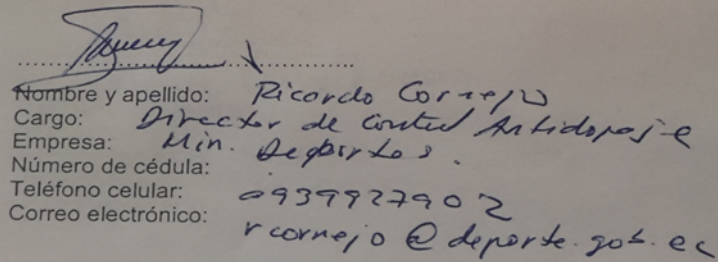 Nombre y apellido: Ricardo Cornejo
Cargo: Director de Control Antidopaje
Empresa: Min. Deportes.
Número de cédula:
Teléfono celular: 0939927902
Correo electrónico: rcornejo@deporte.gob.ec